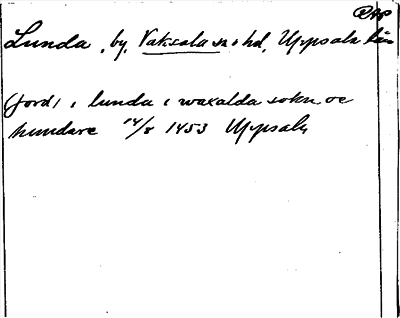 Lunda, by, Vaksala sn o hd, Uppsala län
(jord) i lunda i waxalda sokn oc
hundare 14/8 1453 Uppsala